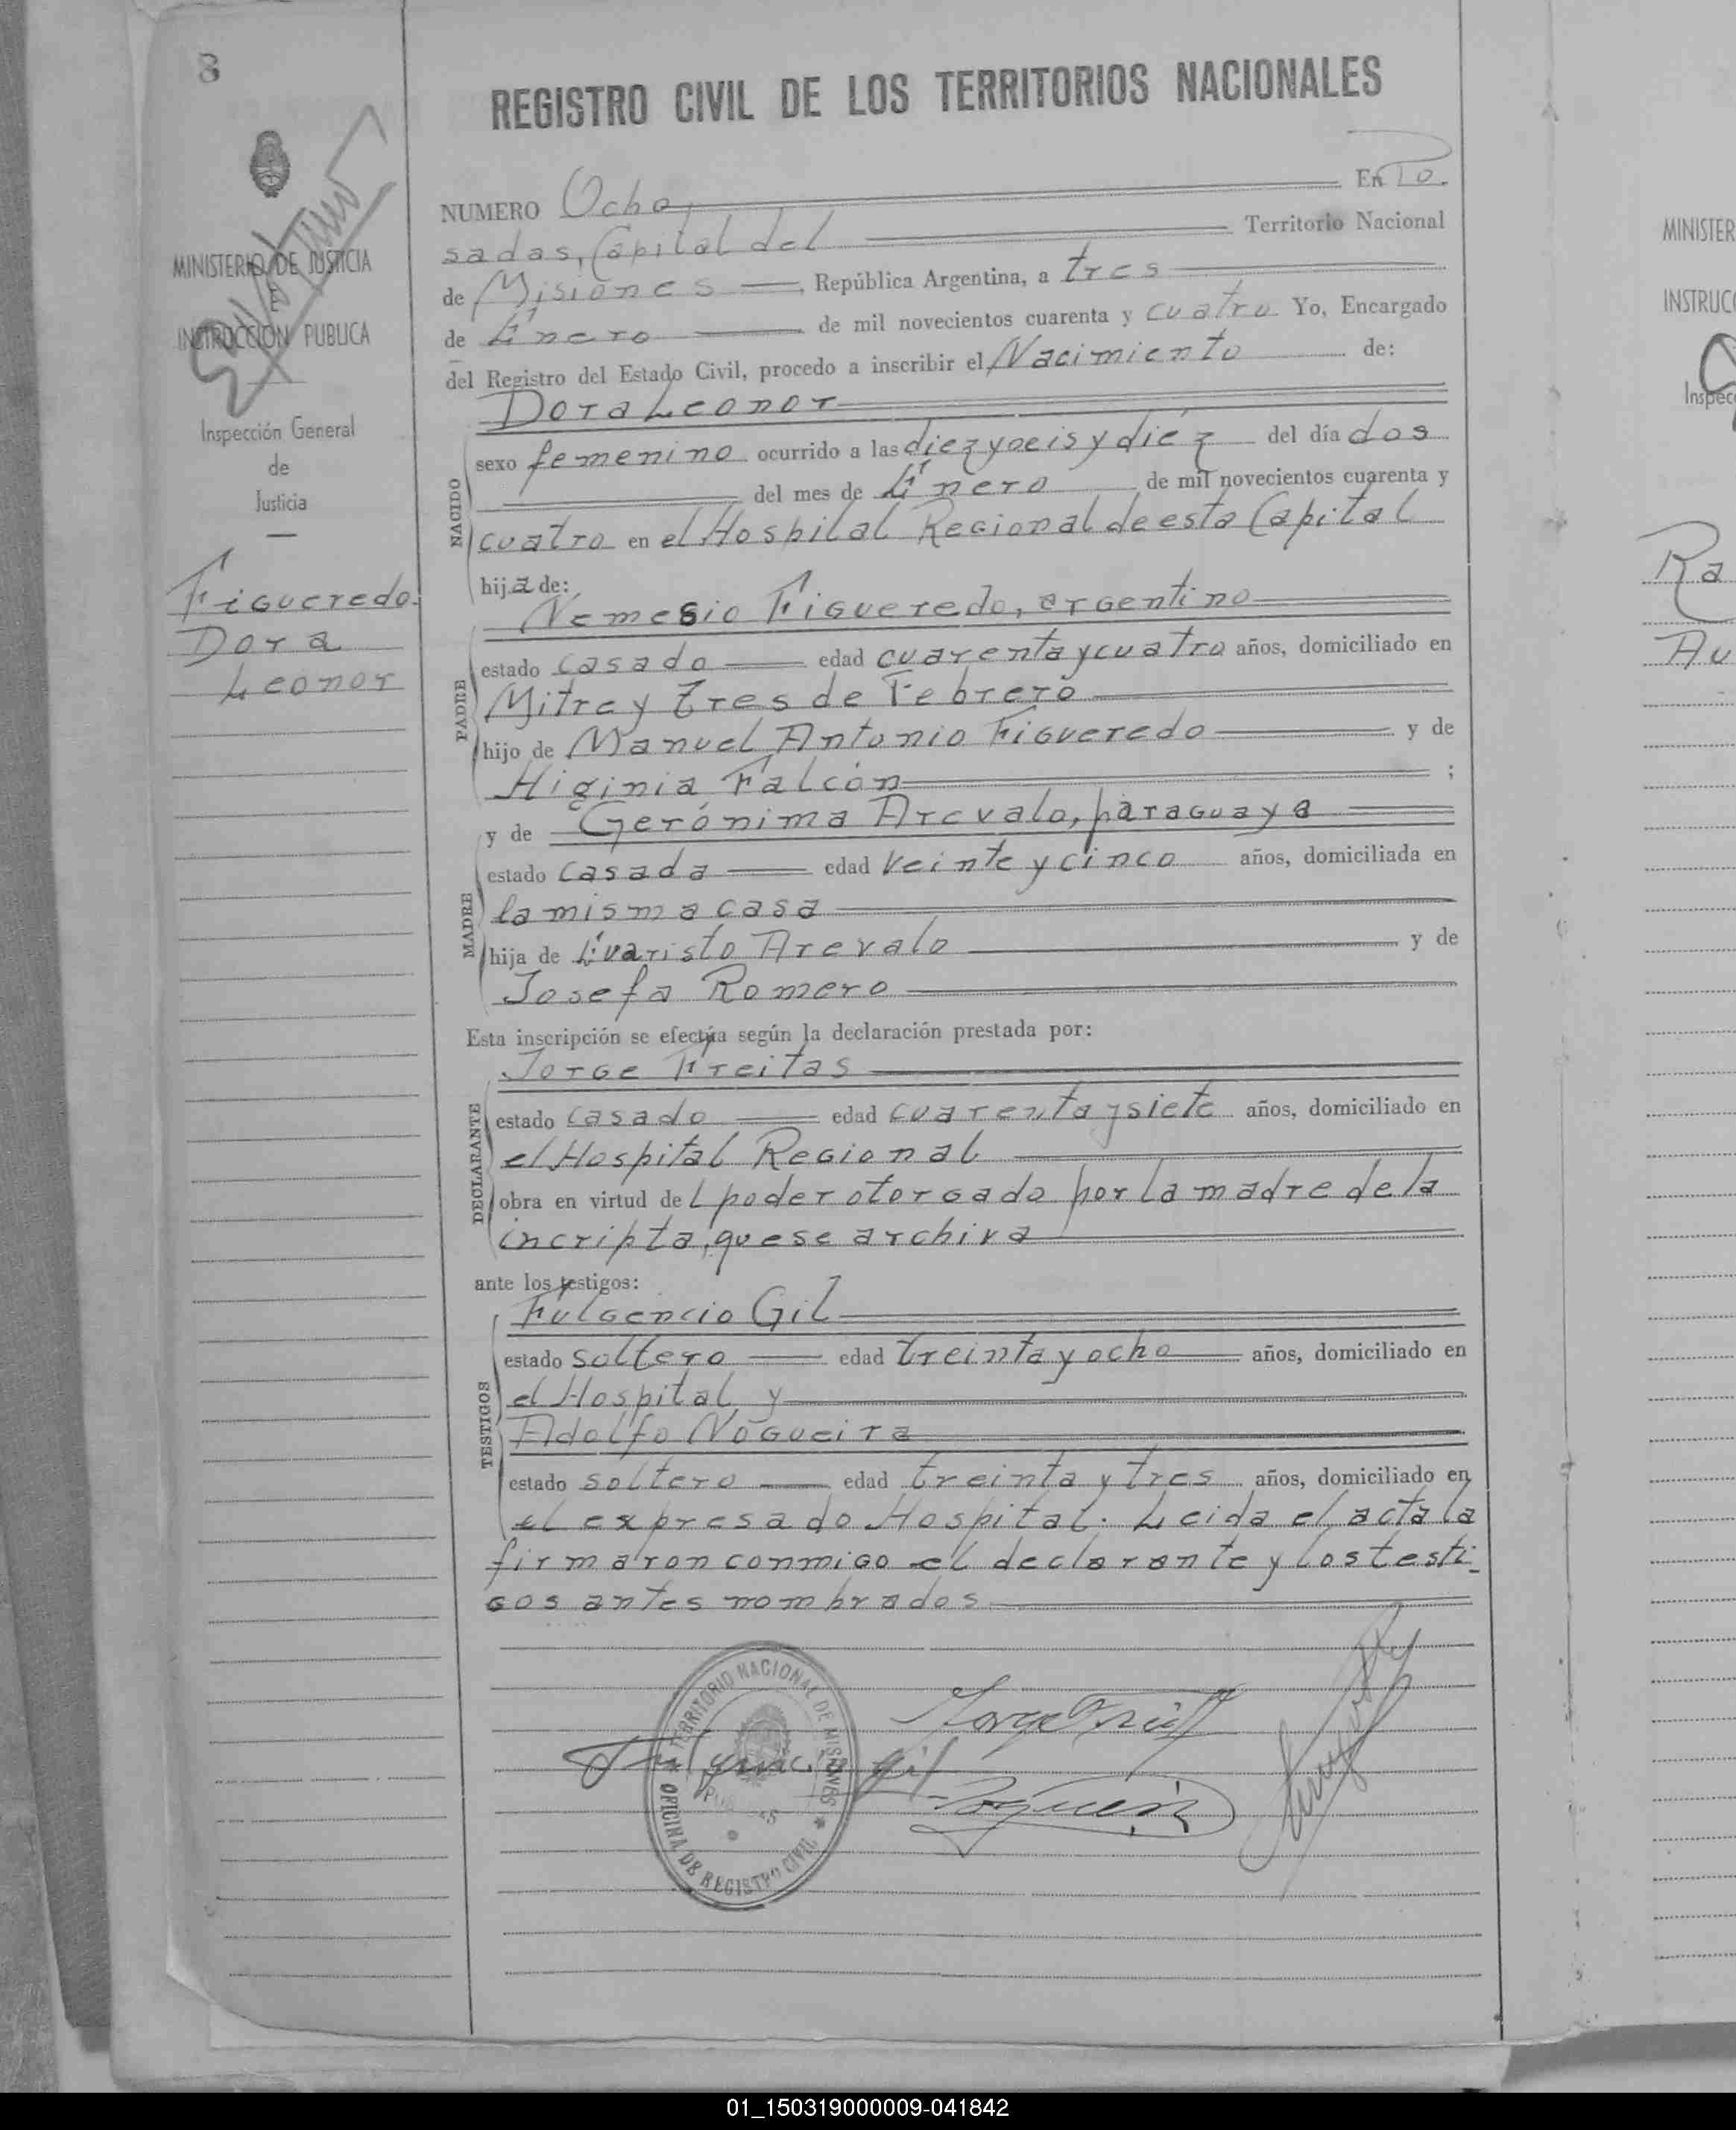 8
MINISTERIO DE JUSTICIA
E
INSTRUCCION PUBLICA
Inspección General
de
Justicia
Figueredo
Dora
Leonor
REGISTRO CIVIL DE LOS TERRITORIOS NACIONALES
NUMERO Ocho, En Po-
sadas, Capital del Territorio Nacional
de Misiones, República Argentina, a tres
de Enero de mil novecientos cuarenta y cuatro Yo, Encargado
del Registro del Estado Civil, procedo a inscribir el Nacimiento de:
Dora Leonor
NACIDO
sexo femenino ocurrido a las diez y seis y diéz del día dos
del mes de Enero de mil novecientos cuarenta y
cuatro en el Hospital Regional de esta Capital
hija de:
PADRE
Nemesio Figueredo, argentino
estado casado edad cuarenta y cuatro años, domiciliado en
Mitre y tres de Febrero
hijo de Manuel Antonio Figueredo y de
Higinia Falcón ;
MADRE
y de Gerónima Arevalo, paraguaya
estado casada edad veinte y cinco años, domiciliada en
la misma casa
hija de Evaristo Arevalo y de
Josefa Romero
Esta inscripción se efectúa según la declaración prestada por:
DECLARANTE
Jorge Freitas
estado casado edad cuarenta y siete años, domiciliado en
el Hospital Regional
obra en virtud del poder otorgado por la madre de la
incripta, que se archiva
ante los testigos:
TESTIGOS
Fulgencio Gil
estado soltero edad treinta y ocho años, domiciliado en
el Hospital y
Adolfo Nogueira
estado soltero edad treinta y tres años, domiciliado en
el expresado Hospital. Leida el acta la
firmaron conmigo el declarante y los testi-
gos antes nombrados
TERRITORIO NACIONAL DE MISIONES
OFICINA DE REGISTRO CIVIL
Fulgencio Gil
MINISTER
INSTRUCC
Inspec
Ra
Au
01_150319000009-041842